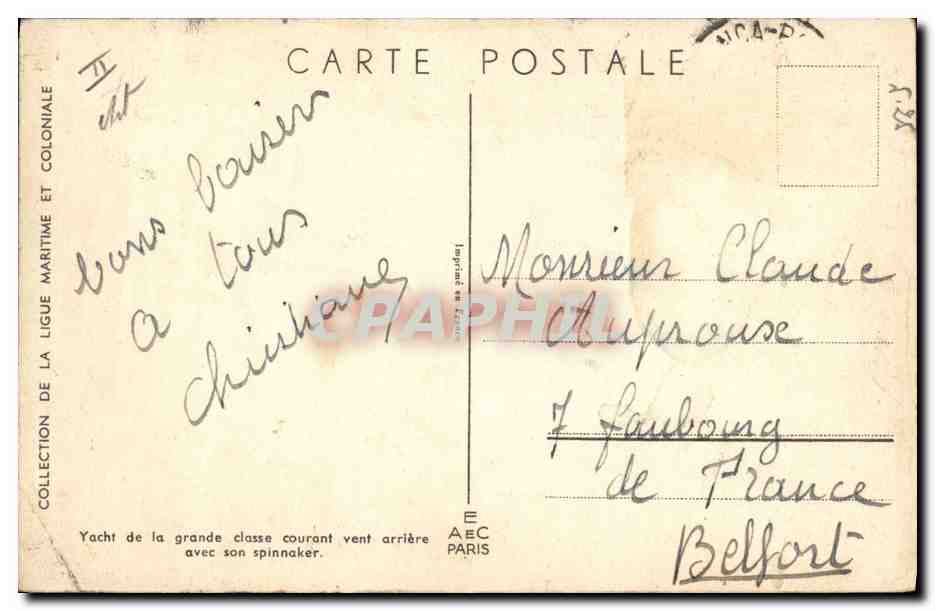 CARTE POSTALE
COLLECTION DE LA LIGUE MARITIME ET COLONIALE
II
bons baisers
a tous
Christiane
Imprimé en France
Monsieur Claude
Auproux
7 faubourg
de France
Belfort
Yacht de la grande classe courant vent arrière
avec son spinnaker.
E
AEC
PARIS
CPAPHIL